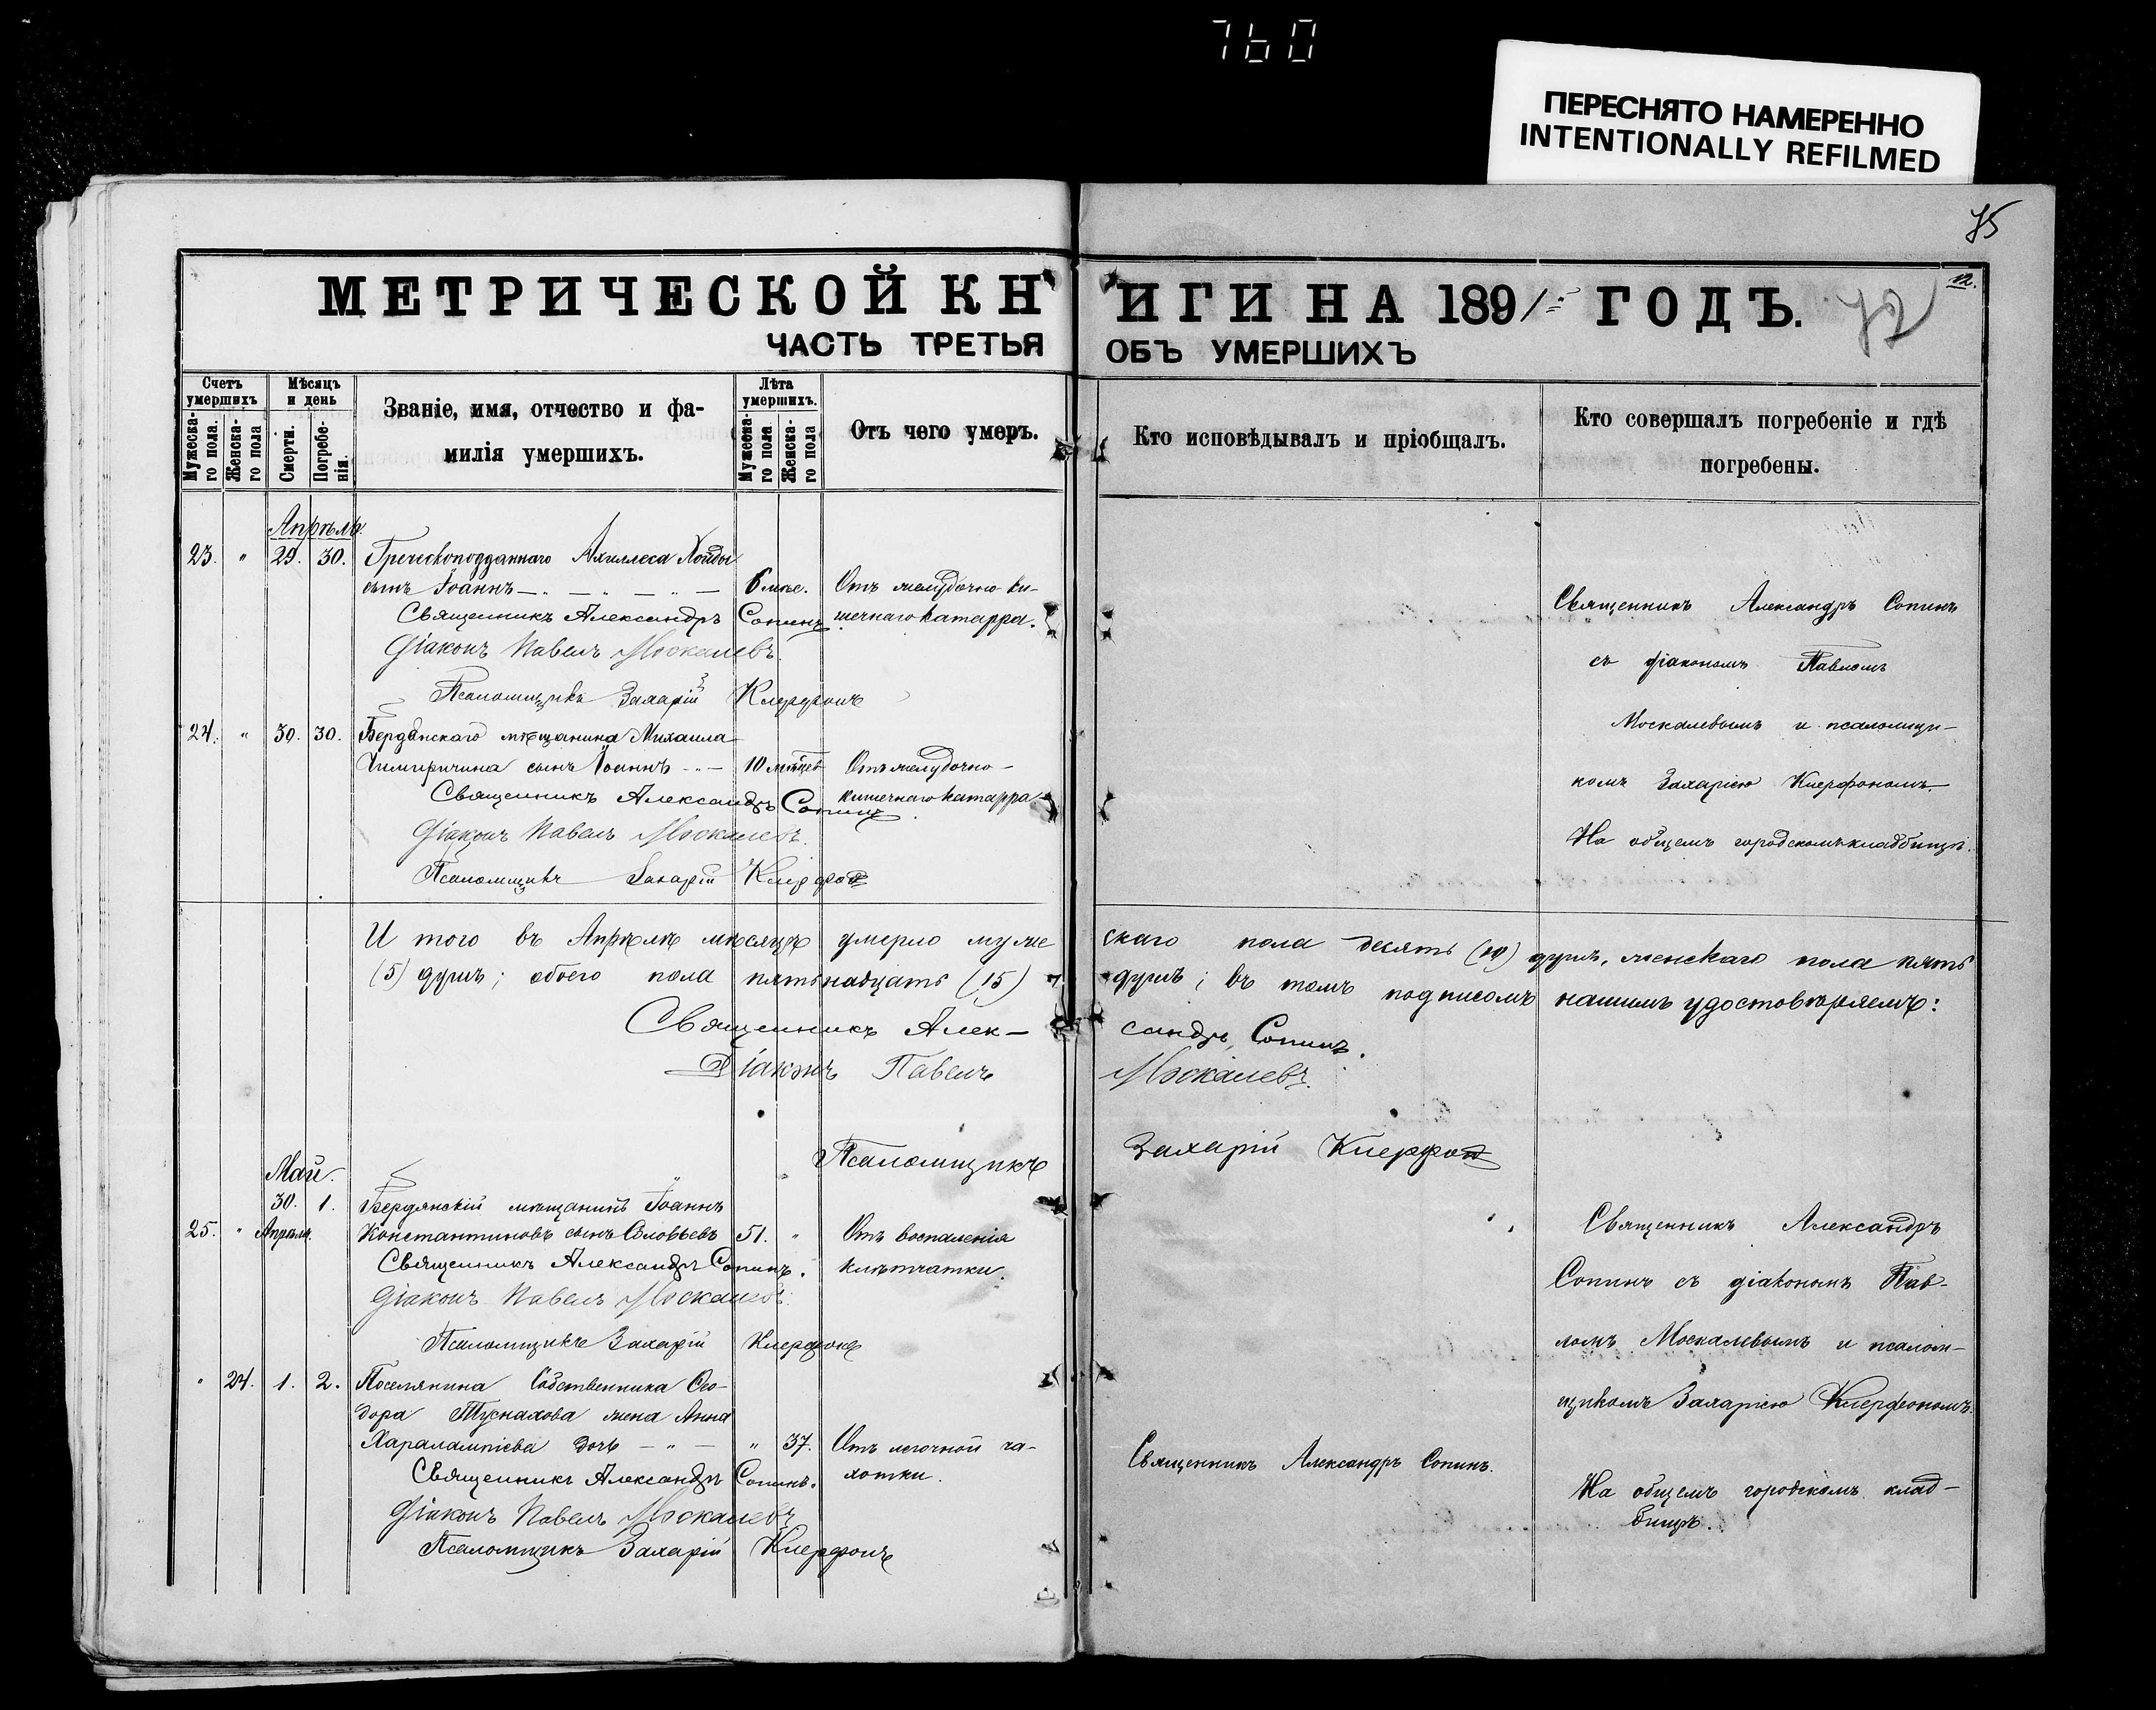 760
ПЕРЕСНЯТО НАМЕРЕННО
INTENTIONALLY REFILMED
75
МЕТРИЧЕСКОЙ КНИГИ НА 1891 ГОДЪ.
72
12.
ЧАСТЬ ТРЕТЬЯ ОБЪ УМЕРШИХЪ
Счетъ умершихъ
Мужеска-го пола.
Женска-го пола
Мѣсяцъ и день
Смерти.
Погребе-нія.
Званіе, имя, отчество и фа-
милія умершихъ.
Лѣта умершихъ.
Мужеска-го пола
Женска-го пола
Отъ чего умеръ.
Кто исповѣдывалъ и пріобщалъ.
Кто совершалъ погребеніе и гдѣ
погребены.
Апрѣль.
23. " 29. 30. Греческоподданнаго Ахиллеса
сынъ Іоаннъ 6 мѣс. Отъ желудочно-ки-
Священникъ Александръ Сопинъ шечнаго катарра.
Діаконъ Павелъ Москалевъ.
Псаломщикъ Захарій Клерфонъ
Священникъ Александръ Сопинъ
съ діакономъ Павломъ
Москалевымъ и псаломщи-
комъ Захаріею Клерфономъ.
На общемъ городскомъ кладбищѣ.
24. " 30. 30. Бердянскаго мѣщанина Михаила
сынъ Іоаннъ 10 мѣсяцев Отъ желудочно-
Священникъ Александръ Сопинъ кишечнаго катарра.
Діаконъ Павелъ Москалевъ.
Псаломщикъ Захарій Клерфон
И того въ Апрѣлѣ мѣсяцѣ умерло мужескаго пола десять (10) душъ, женскаго пола пять
(5) душъ; обоего пола пятьнадцать (15) душъ; въ томъ подписомъ нашимъ удостовѣряемъ:
Священникъ Александръ Сопинъ.
Діаконъ Павелъ Москалевъ.
Псаломщикъ Захарій Клерфон
Май.
30. 1. Бердянскій мѣщанинъ Іоаннъ
25. " Апрѣля. Константиновъ сынъ Соловьевъ 51. " Отъ воспаленія
Священникъ Александръ Сопинъ. клѣтчатки.
Діаконъ Павелъ Москалевъ.
Псаломщикъ Захарій Клерфонъ
Священникъ Александръ
Сопинъ съ діакономъ Пав-
ломъ Москалевымъ и псалом-
щикомъ Захаріею Клерфономъ.
На общемъ городскомъ клад-
бищѣ.
" 24. 1. 2. Поселянина Собственника Ѳео-
дора жена Анна
Харалампіева дочь " 37. Отъ легочной ча-
Священникъ Александръ Сопинъ. хотки.
Діаконъ Павелъ Москалевъ
Псаломщикъ Захарій Клерфонъ
Священникъ Александръ Сопинъ.